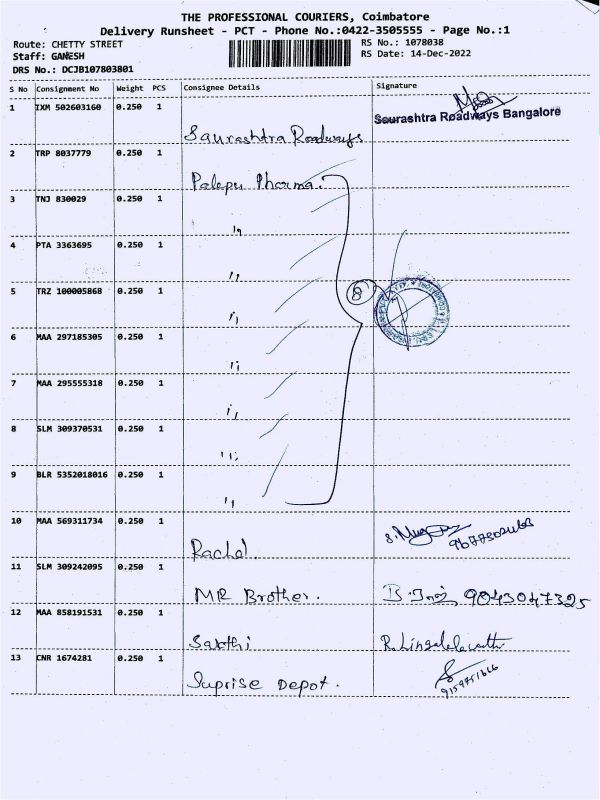 THE PROFESSIONAL COURIERS, Coimbatore
Delivery Runsheet - PCT - Phone No.:0422-3505555 - Page No.:1
Route: CHETTY STREET
RS No.: 1078038
Staff: GANESH
RS Date: 14-Dec-2022
DRS No.: DCJB107803801
S No Consignment No Weight PCS Consignee Details Signature
1 IXM 502603160 0.250 1
Saurashtra Roadways Bangalore
Saurashtra Roadways
2 TRP 8037779 0.250 1
Palepu Pharma.
3 TNJ 830029 0.250 1
"
4 PTA 3363695 0.250 1
"
5 TRZ 100005868 0.250 1 8
"
6 MAA 297185305 0.250 1
"
7 MAA 295555318 0.250 1
"
8 SLM 309370531 0.250 1
"
9 BLR 5352018016 0.250 1
"
10 MAA 569311734 0.250 1
Rachel
11 SLM 309242095 0.250 1
MR Brother. 9043047325
12 MAA 858191531 0.250 1
Sakthi
13 CNR 1674281 0.250 1
Suprise Depot.